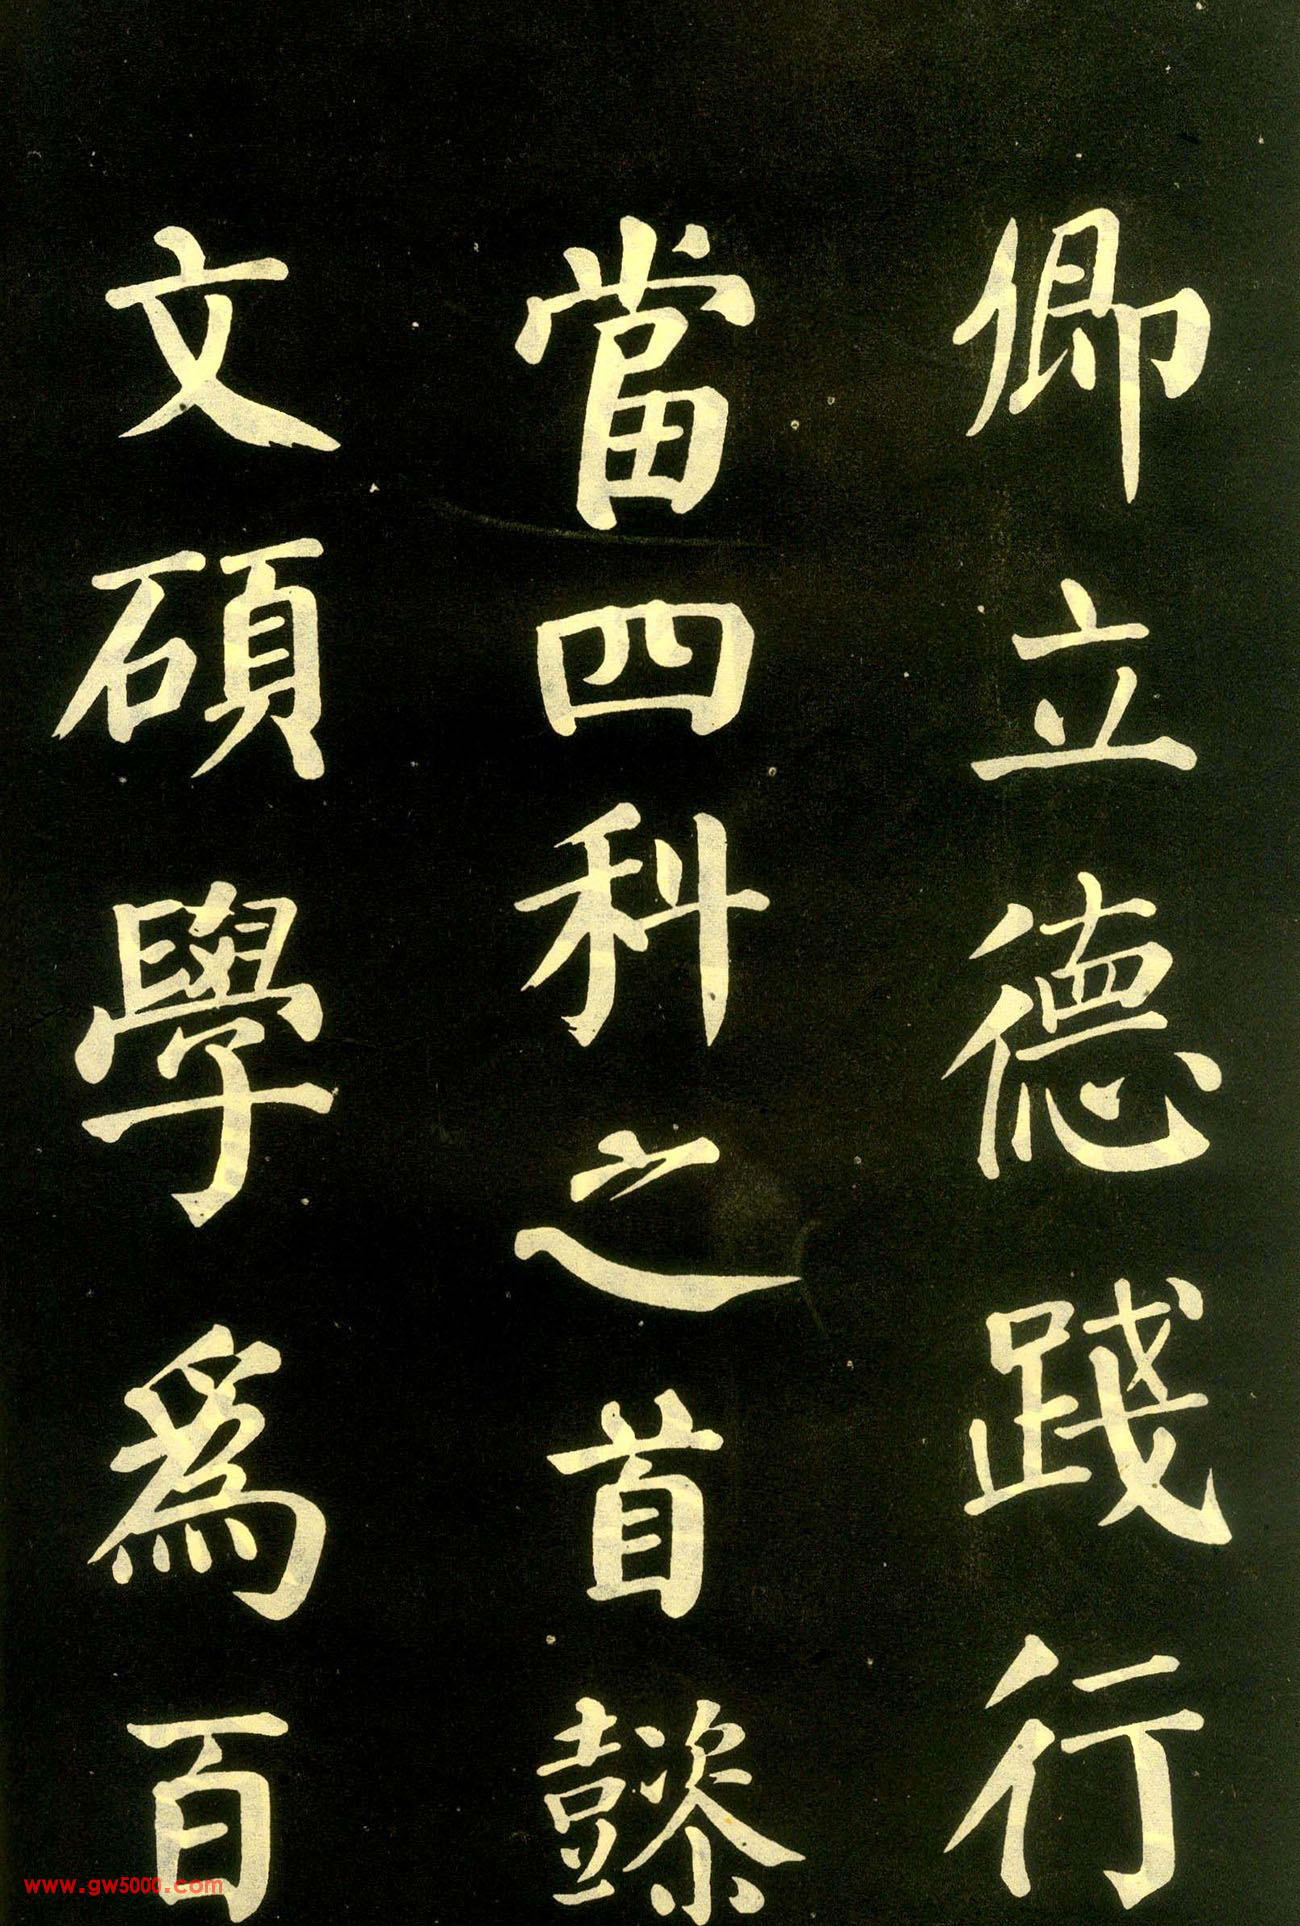 卿立德踐行
當四科之首懿
文碩學爲百
www.gw5000.com